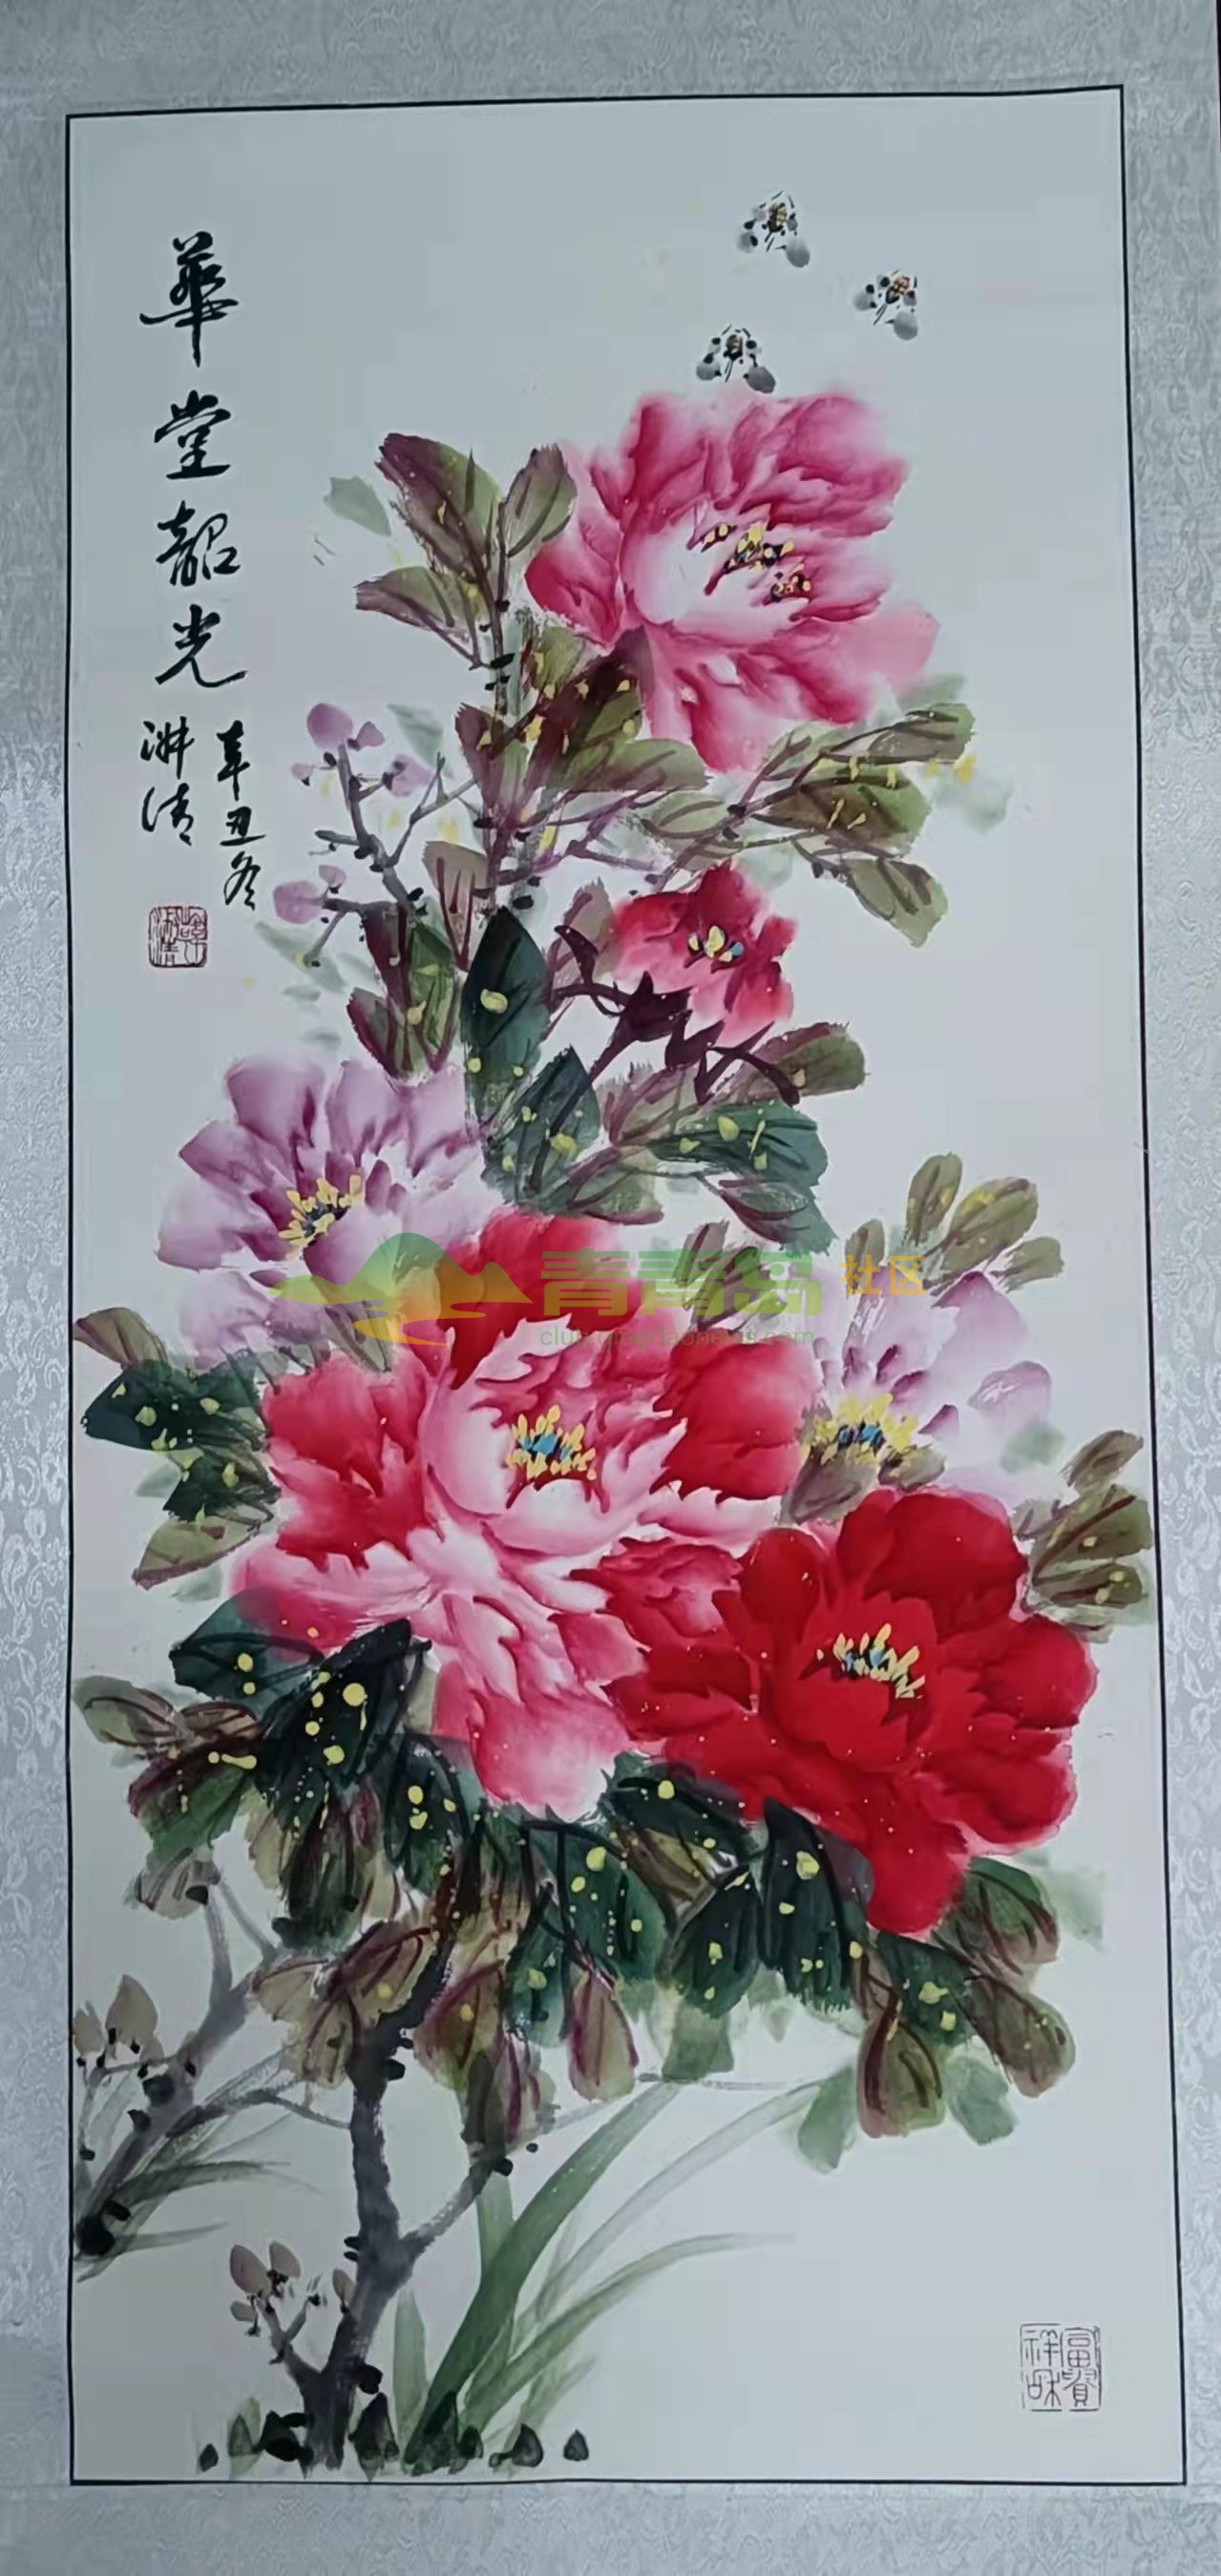 華堂韶光
辛丑冬
淋清
青青岛 社区
club.qingdaonews.com
富貴
祥和